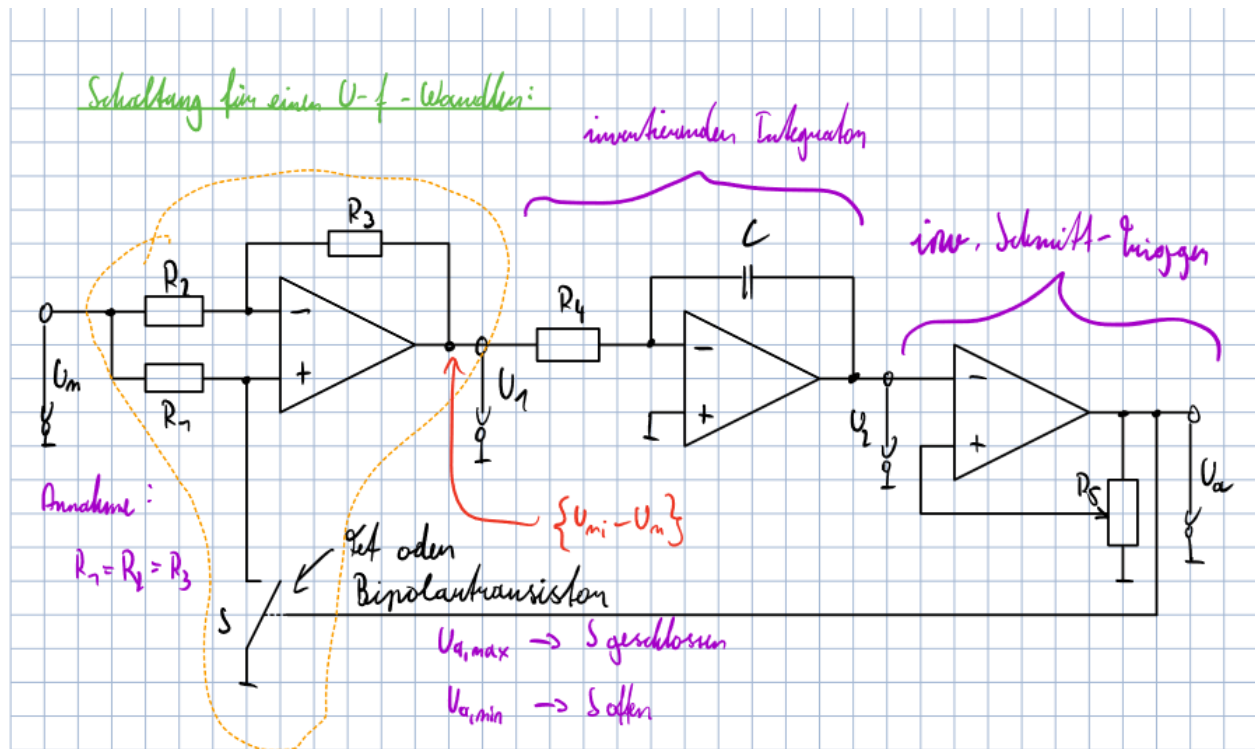 Schaltung für einen U-f-Wandler:
invertierender Integrator
inv. Schmitt-Trigger
R3
C
R2
R4
-
-
-
+
+
+
Um
R1
U1
U2
R5
Ua
Annahme:
R1 = R2 = R3
{Um; -Um}
Fet oder
Bipolartransistor
S
Ua,max → S geschlossen
Ua,min → S offen